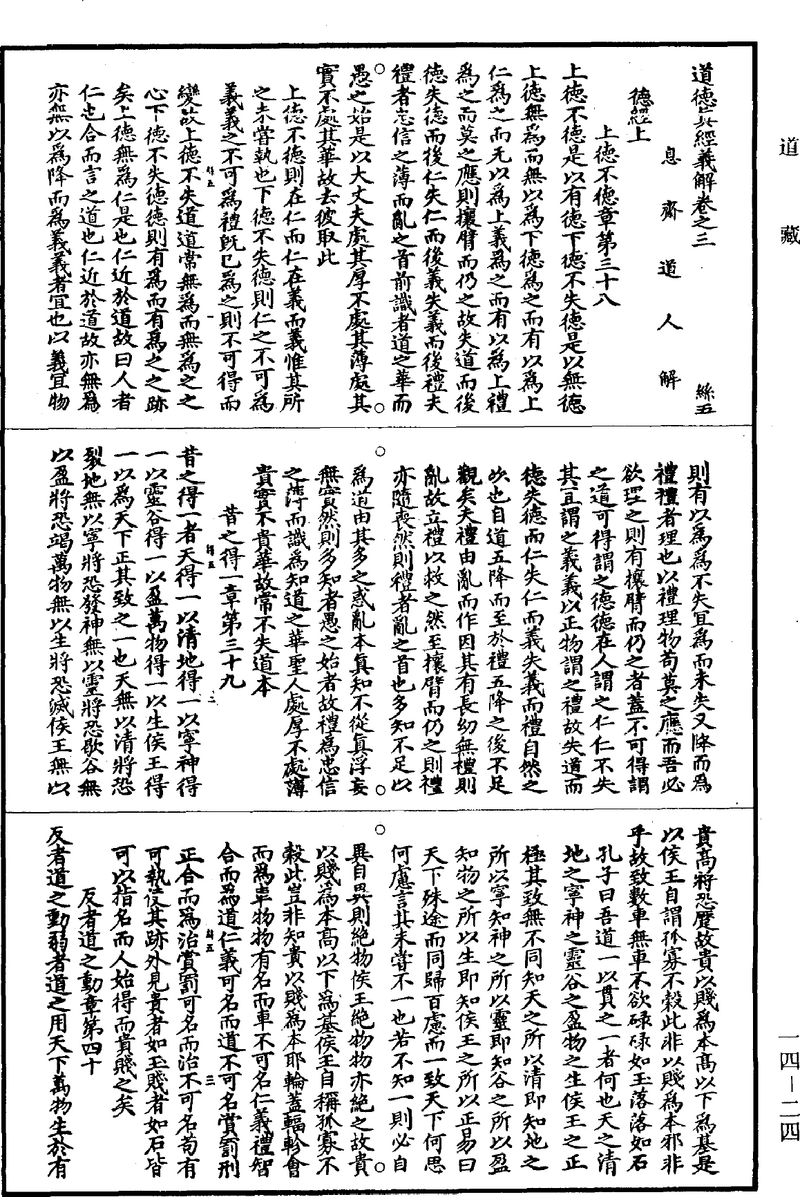 道藏
一四—二四
道德真經義解卷之三
絲五
息齋道人解
德經上
上德不德章第三十八
上德不德是以有德下德不失德是以無德
上德無為而無以為下德為之而有以為上
仁為之而无以為上義為之而有以為上禮
為之而莫之應則攘臂而仍之故失道而後
德失德而後仁失仁而後義失義而後禮夫
禮者忠信之薄而亂之首前識者道之華而
愚之始是以大丈夫處其厚不處其薄處其
實不處其華故去彼取此
上德不德則在仁而仁在義而義惟其所
之未嘗執也下德不失德則仁之不可為
義義之不可為禮旣已為之則不可得而
變故上德不失道道常無為而無為之之
心下德不失德德則有為而有為之之跡
矣上德無為仁是也仁近於道故曰人者
仁也合而言之道也仁近於道故亦無為
亦無以為降而為義義者宜也以義宜物
則有以為為不失宜為而未失又降而為
禮禮者理也以禮理物苟莫之應而吾必
欲理之則有攘臂而仍之者蓋不可得謂
之道可得謂之德德在人謂之仁仁不失
其宜謂之義義以正物謂之禮故失道而
德失德而仁失仁而義失義而禮自然之
次也自道五降而至於禮五降之後不足
觀矣夫禮由亂而作因其有長幼無禮則
亂故立禮以救之然至攘臂而仍之則禮
亦隨喪然則禮者亂之首也多知不足以
為道由其多之惑亂本真知不從真浮妄
無實然則多知者愚之始者故禮為忠信
之薄而識為知道之華聖人處厚不處薄
貴實不貴華故常不失道本
昔之得一章第三十九
昔之得一者天得一以清地得一以寧神得
一以靈谷得一以盈萬物得一以生侯王得
一以為天下正其致之一也天無以清將恐
裂地無以寧將恐發神無以靈將恐歇谷無
以盈將恐竭萬物無以生將恐滅侯王無以
貴高將恐蹷故貴以賤為本高以下為基是
以侯王自謂孤寡不榖此非以賤為本邪非
乎故致數車無車不欲碌碌如玉落落如石
孔子曰吾道一以貫之一者何也天之清
地之寧神之靈谷之盈物之生侯王之正
極其致無不同知天之所以清即知地之
所以寧知神之所以靈即知谷之所以盈
知物之所以生即知侯王之所以正易曰
天下殊途而同歸百慮而一致天下何思
何慮言其未嘗不一也若不知一則必自
異自異則絕物侯王絕物物亦絕之故貴
以賤為本高以下為基侯王自稱孤寡不
榖此豈非知貴以賤為本耶輪蓋輻軫會
而為車物物有名而車不可名仁義禮智
合而為道仁義可名而道不可名賞罰刑
正合而為治賞罰可名而治不可名苟有
可執從其跡外見貴者如玉賤者如石皆
可以指名而人始得而貴賤之矣
反者道之動章第四十
反者道之動弱者道之用天下萬物生於有